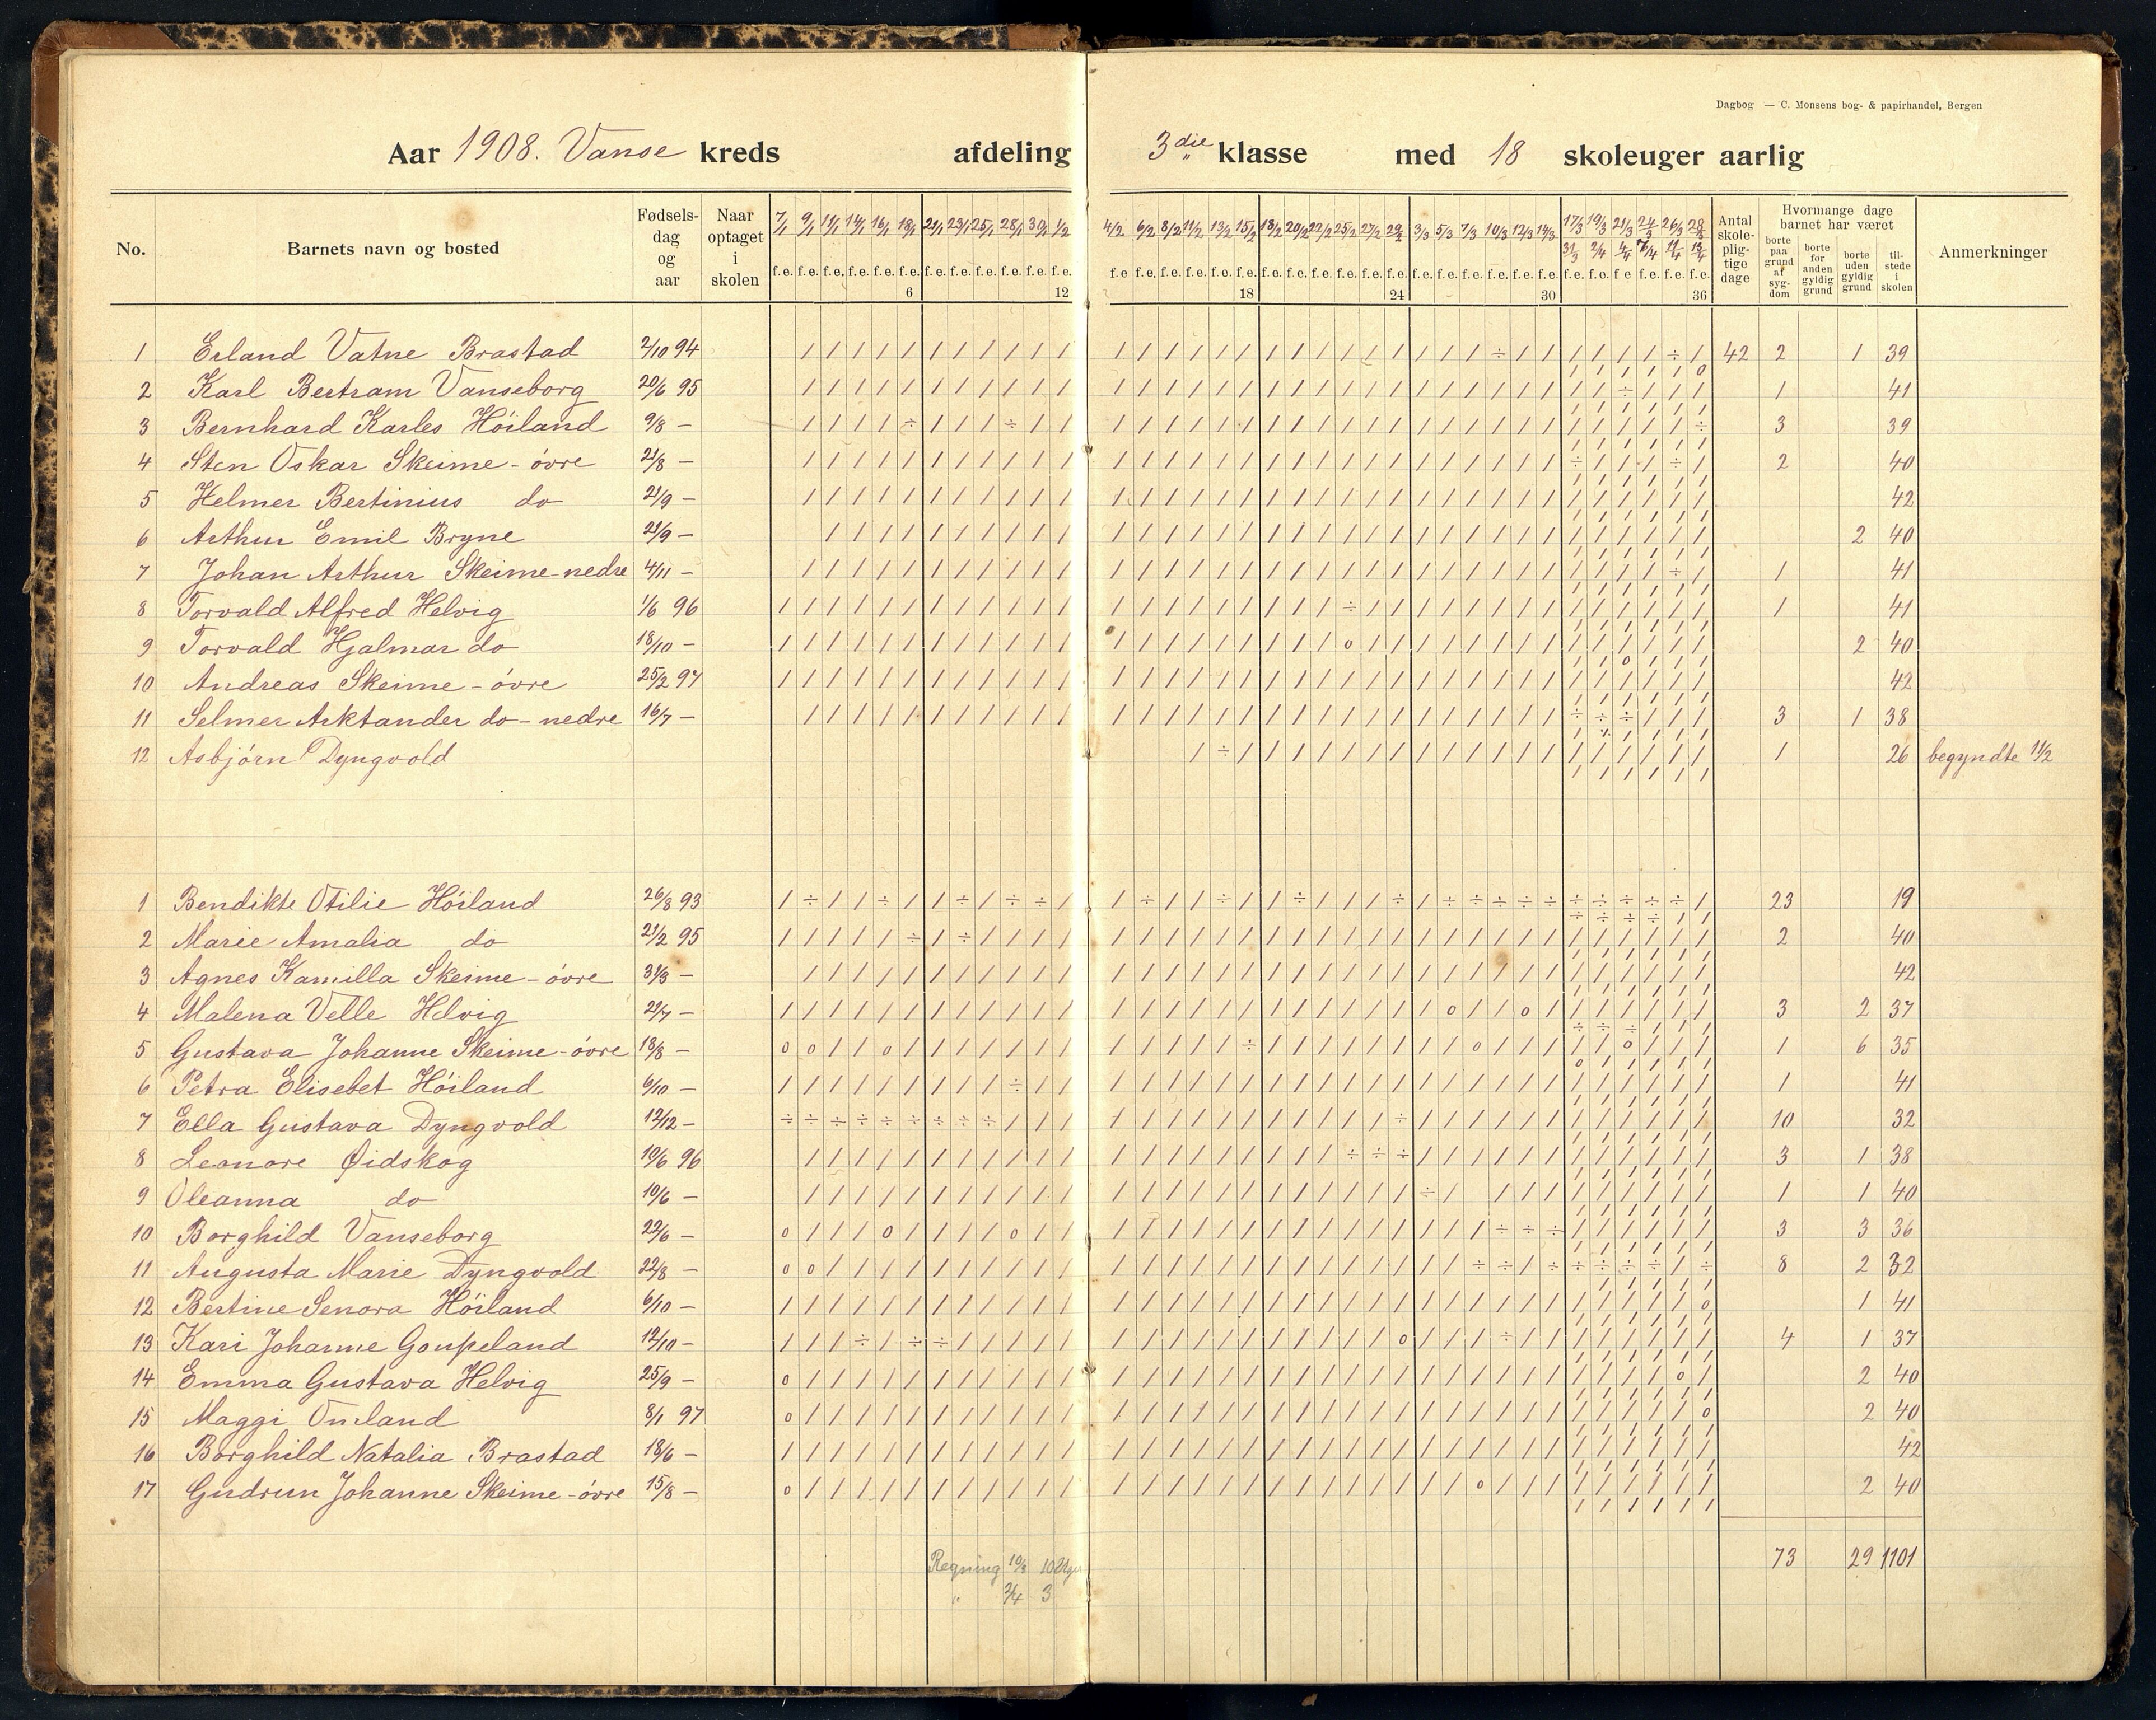 Dagbog — C. Monsens bog- & papirhandel, Bergen
Aar 1908. Vanse kreds afdeling 3die klasse med 18 skoleuger aarlig
No. Barnets navn og bosted Fødsels-dag og aar Naar optaget i skolen 7/1 9/1 11/1 14/1 16/1 18/1 21/1 23/1 25/1 28/1 30/1 1/2 4/2 6/2 8/2 11/2 13/2 15/2 18/2 20/2 22/2 25/2 27/2 29/2 3/3 5/3 7/3 10/3 12/3 14/3 17/3 19/3 21/3 24/3 26/3 28/3 Antal skole-plig-tige dage Hvormange dage barnet har været Anmerkninger
31/3 2/4 4/4 7/4 11/4 13/4
borte paa grund af syg-dom borte for anden gyldig grund borte uden gyldig grund til-stede i skolen
f.e. f.e. f.e. f.e. f.e. f.e. f.e. f.e. f.e. f.e. f.e. f.e. f.e f.e. f.e. f.e. f.e. f.e. f.e. f.e. f.e. f.e. f.e. f.e. f.e. f.e. f.e. f.e. f.e. f.e. f.e. f.e. f e f.e. f.e. f.e.
6 12 18 24 30 36
1 Erland Vatne Brastad 2/10 94 42 2 1 39
2 Karl Bertram Vanseborg 20/6 95 1 41
3 Bernhard Karles Höiland 9/8 — 3 39
4 Sten Oskar Skeime - övre 21/8 — 2 40
5 Helmer Bertinius do 21/9 — 42
6 Arthur Emil Bryne 21/9 — 2 40
7 Johan Arthur Skeime-nedre 4/11 — 1 41
8 Torvald Alfred Helvig 1/6 96 1 41
9 Torvald Hjalmar do 18/10 — 2 40
10 Andreas Skeime - övre 25/2 97 42
11 Selmer Arktander do - nedre 16/7 — 3 1 38
12 Asbjörn Dyngvold 1 26 begyndte 11/2
1 Bendikte Otilie Höiland 26/8 93 23 19
2 Marie Amalia do 21/2 95 2 40
3 Agnes Kamilla Skeime - övre 31/3 — 42
4 Malena Velle Helvig 21/7 — 3 2 37
5 Gustava Johanne Skeime - övre 18/8 — 1 6 35
6 Petra Elisebet Höiland 6/10 — 1 41
7 Ella Gustava Dyngvold 12/12 — 10 32
8 Leonore Øidskog 10/6 96 3 1 38
9 Oleanna do 10/6 — 1 1 40
10 Borghild Vanseborg 22/6 — 3 3 36
11 Augusta Marie Dyngvold 22/8 — 8 2 32
12 Bertine Senora Höiland 6/10 — 1 41
13 Kari Johanne Goupeland 12/10 — 4 1 37
14 Emma Gustava Helvig 25/9 — 2 40
15 Maggi Omland 8/1 97 2 40
16 Borghild Natalia Brastad 18/6 — 42
17 Gudrun Johanne Skeime - övre 15/8 — 2 40
73 29 1101
Regning 10/3 10 Uger
" 2/4 3